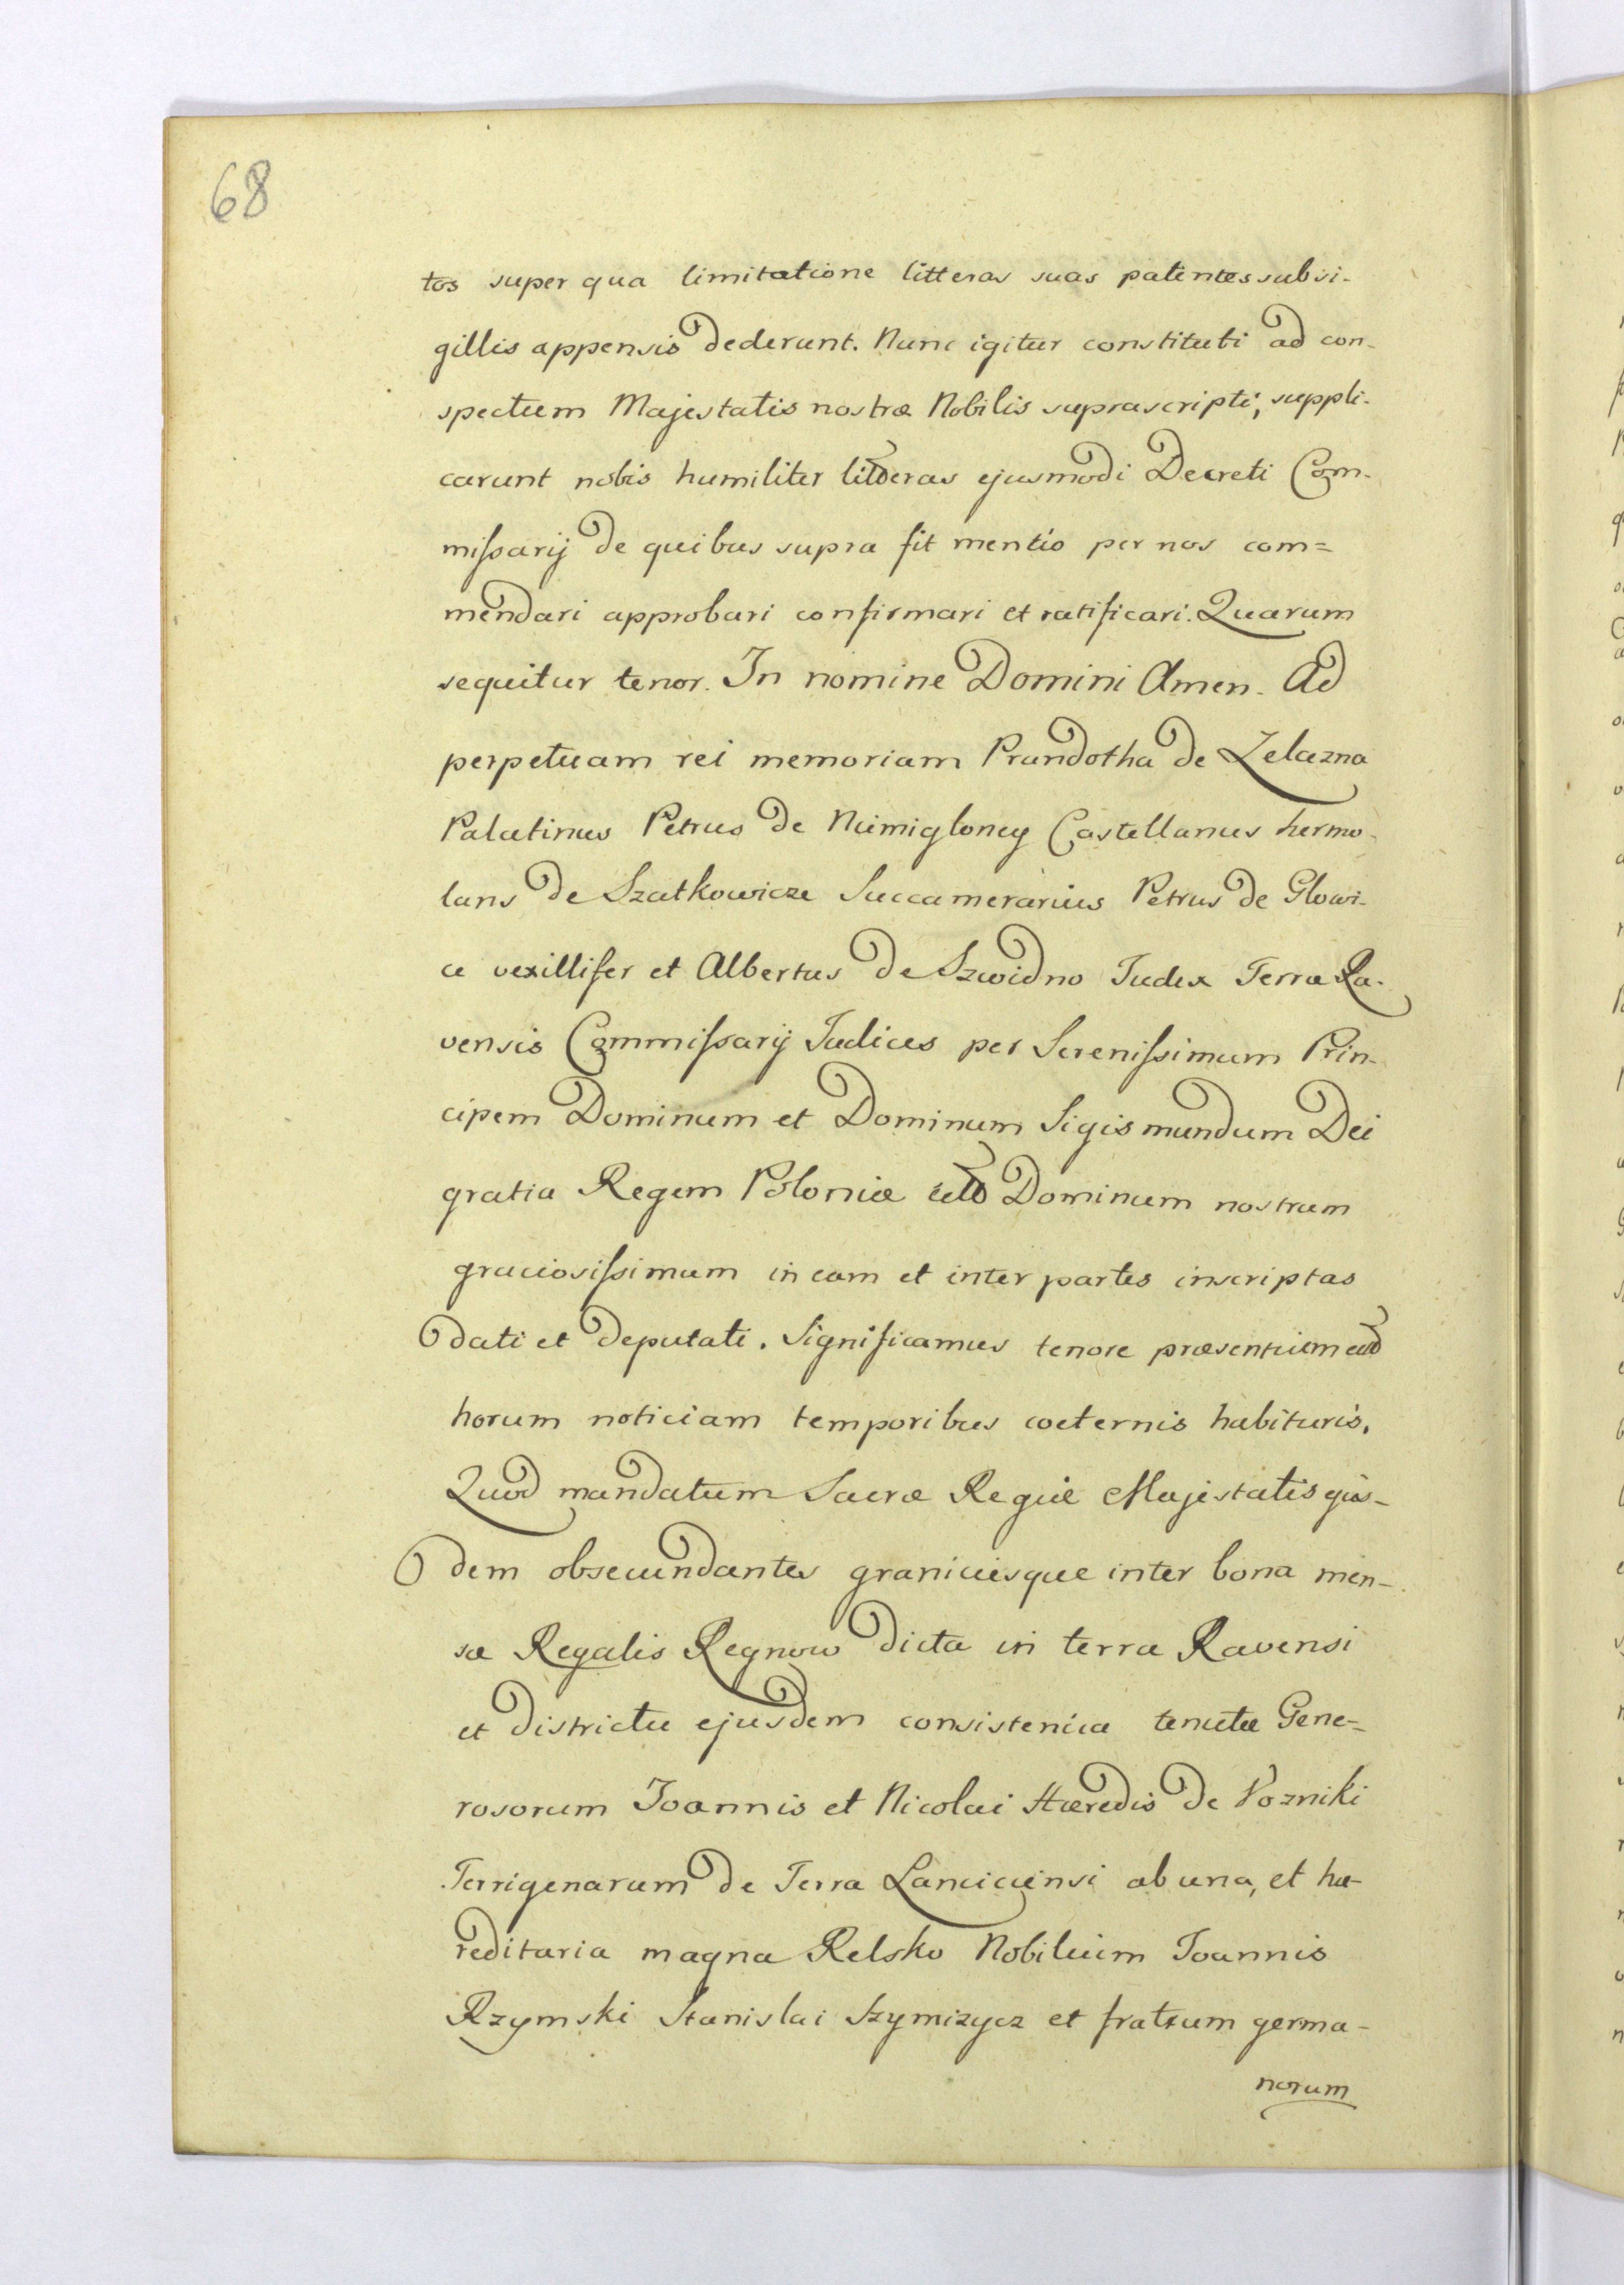 68
tos super qua limitatione litteras suas patentes subsi-
gillis appensis dederunt. Nunc igitur constituti ad con-
spectum Majestatis nostræ Nobilis suprascripti, suppli-
carunt nobis humiliter litteras ejusmodi Decreti Com-
mißarij de quibus supra fit mentio per nos com=
mendari approbari confirmari et ratificari. Quarum
sequitur tenor. In nomine Domini Amen. Ad
perpetuam rei memoriam Prandotha de Zelazna
Palatinus Petrus de Niemigloncy Castellanus hermo-
lans de Szatkowicze Succamerarius Petrus de Glowi-
ce vexillifer et Albertus de Szwidno Judex Terræ Ra-
vensis Commißarij Judices per Serenißimum Prin-
cipem Dominum et Dominum Sigismundum Dei
gratia Regem Poloniæ Dominum nostrum
graciosißimum in eam et inter partes inscriptas
dati et deputati. Significamus tenore præsentium
horum noticiam temporibus coeternis habituris.
Quod mandatum Sacræ Regiæ Majestatis ejus-
dem obsecundantes graniciesque inter bona men-
sæ Regalis Regnow dicta in terra Ravensi
et districtu ejusdem consistencia tenutæ Gene=
rosorum Joannis et Nicolai Hæredis de Vozniki
Terrigenarum de Terra Lanciciensi ab una, et hæ-
reditaria magna Relsko Nobilium Joannis
Rzymski Stanislai Szymizycz et fratrum germa-
norum